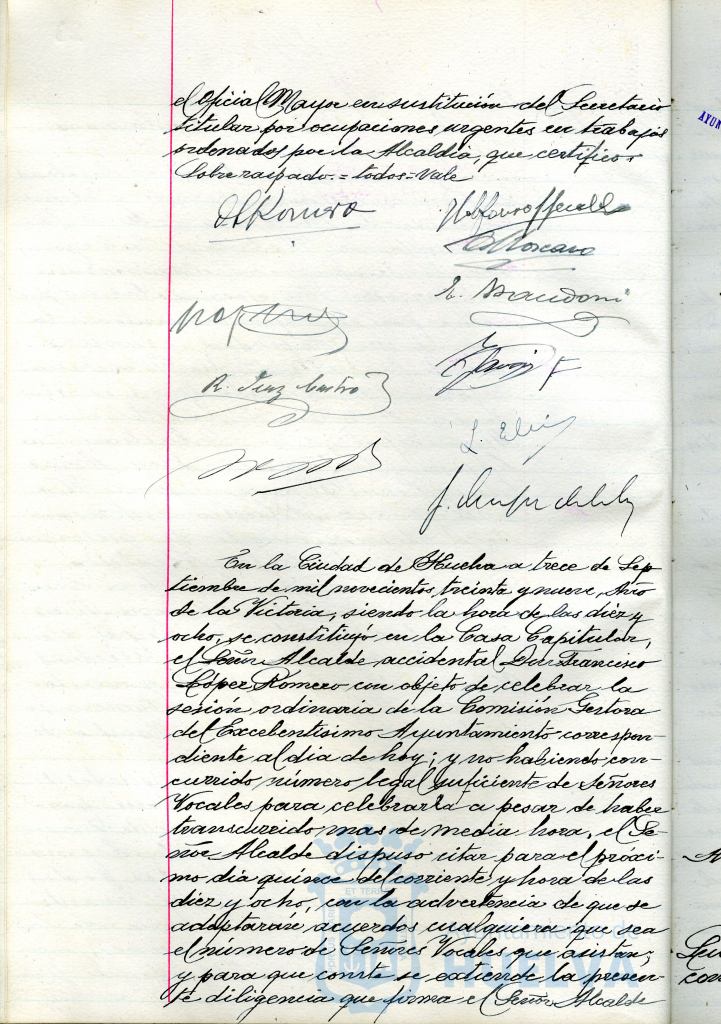 el Oficial Mayor en sustitución del Secretario
titular por ocupaciones urgentes en trabajos
ordenados por la Alcaldía, que certifico.
Sobre raspado.=todos=Vale
R. Diaz Castro
En la Ciudad de Huelva a trece de Sep
tiembre de mil novecientos treinta y nueve, Año
de la Victoria, siendo la hora de las diez y
ocho, se constituyó en la Casa Capitular,
el Señor Alcalde accidental Don Francisco
López Romero con objeto de celebrar la
sesión ordinaria de la Comisión Gestora
del Excelentísimo Ayuntamiento correspon-
diente al dia de hoy; y no habiendo con-
currido número legal suficiente de Señores
Vocales para celebrarla a pesar de haber
transcurrido mas de media hora, el Se-
ñor Alcalde dispuso citar para el próxi-
mo dia quince del corriente y hora de las
diez y ocho, con la advertencia de que se
adoptarán acuerdos cualquiera que sea
el número de Señores Vocales que asistan;
y para que conste se extiende la presen-
te diligencia que firma el Señor Alcalde
AYUN
ET TERR
HUELVA